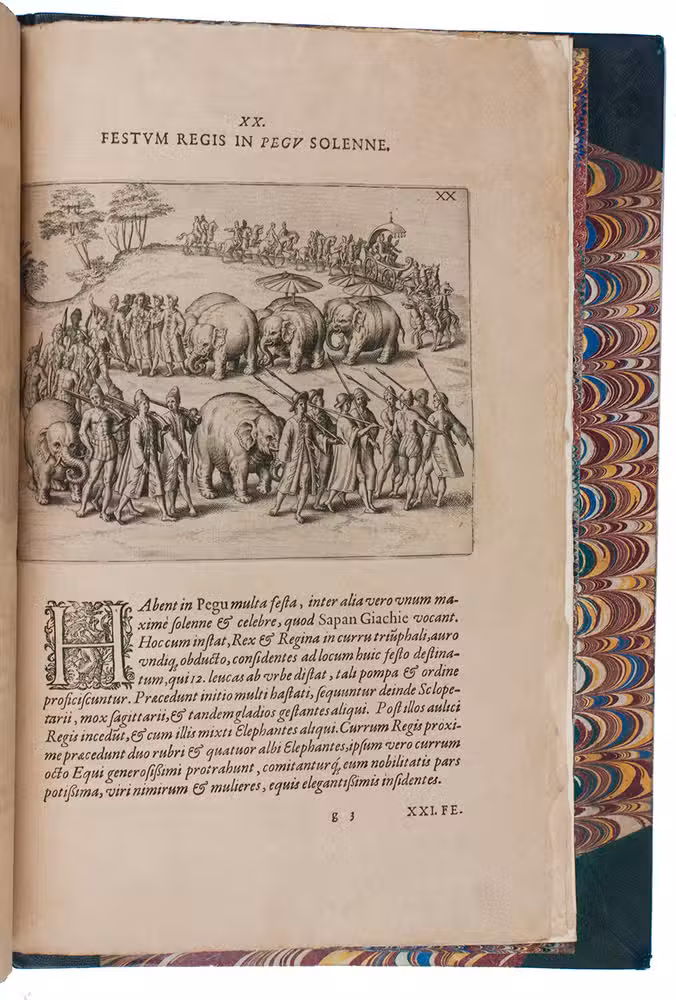 XX.
FESTVM REGIS IN PEGV SOLENNE.
XX
HAbent in Pegu multa festa, inter alia vero vnum ma-
ximè solenne & celebre, quod Sapan Giachie vocant.
Hoc cum instat, Rex & Regina in curru triũphali, auro
vndiq, obducto, considentes ad locum huic festo destina-
tum, qui 12. leucas ab vrbe distat, tali pompa & ordine
proficiscuntur. Præcedunt initio multi hastati, sequuntur deinde Sclope-
tarii, mox sagittarii, & tandem gladios gestantes aliqui. Post illos aulici
Regis incedũt, & cum illis mixti Elephantes aliqui. Currum Regis proxi-
me præcedunt duo rubri & quatuor albi Elephantes, ipsum vero currum
octo Equi generosissimi protrahunt, comitanturq́, eum nobilitatis pars
potissima, viri nimirum & mulieres, equis elegantissimis insidentes.
g 3 XXI. FE-